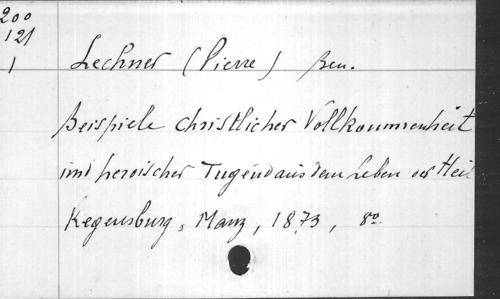 200
121
1
Lechner (Pierre) Ben.
Beispiele christlicher Vollkommenheit
und heroischer Tugend aus dem Leben der Heil
Regensburg, Manz, 1873, 8º.